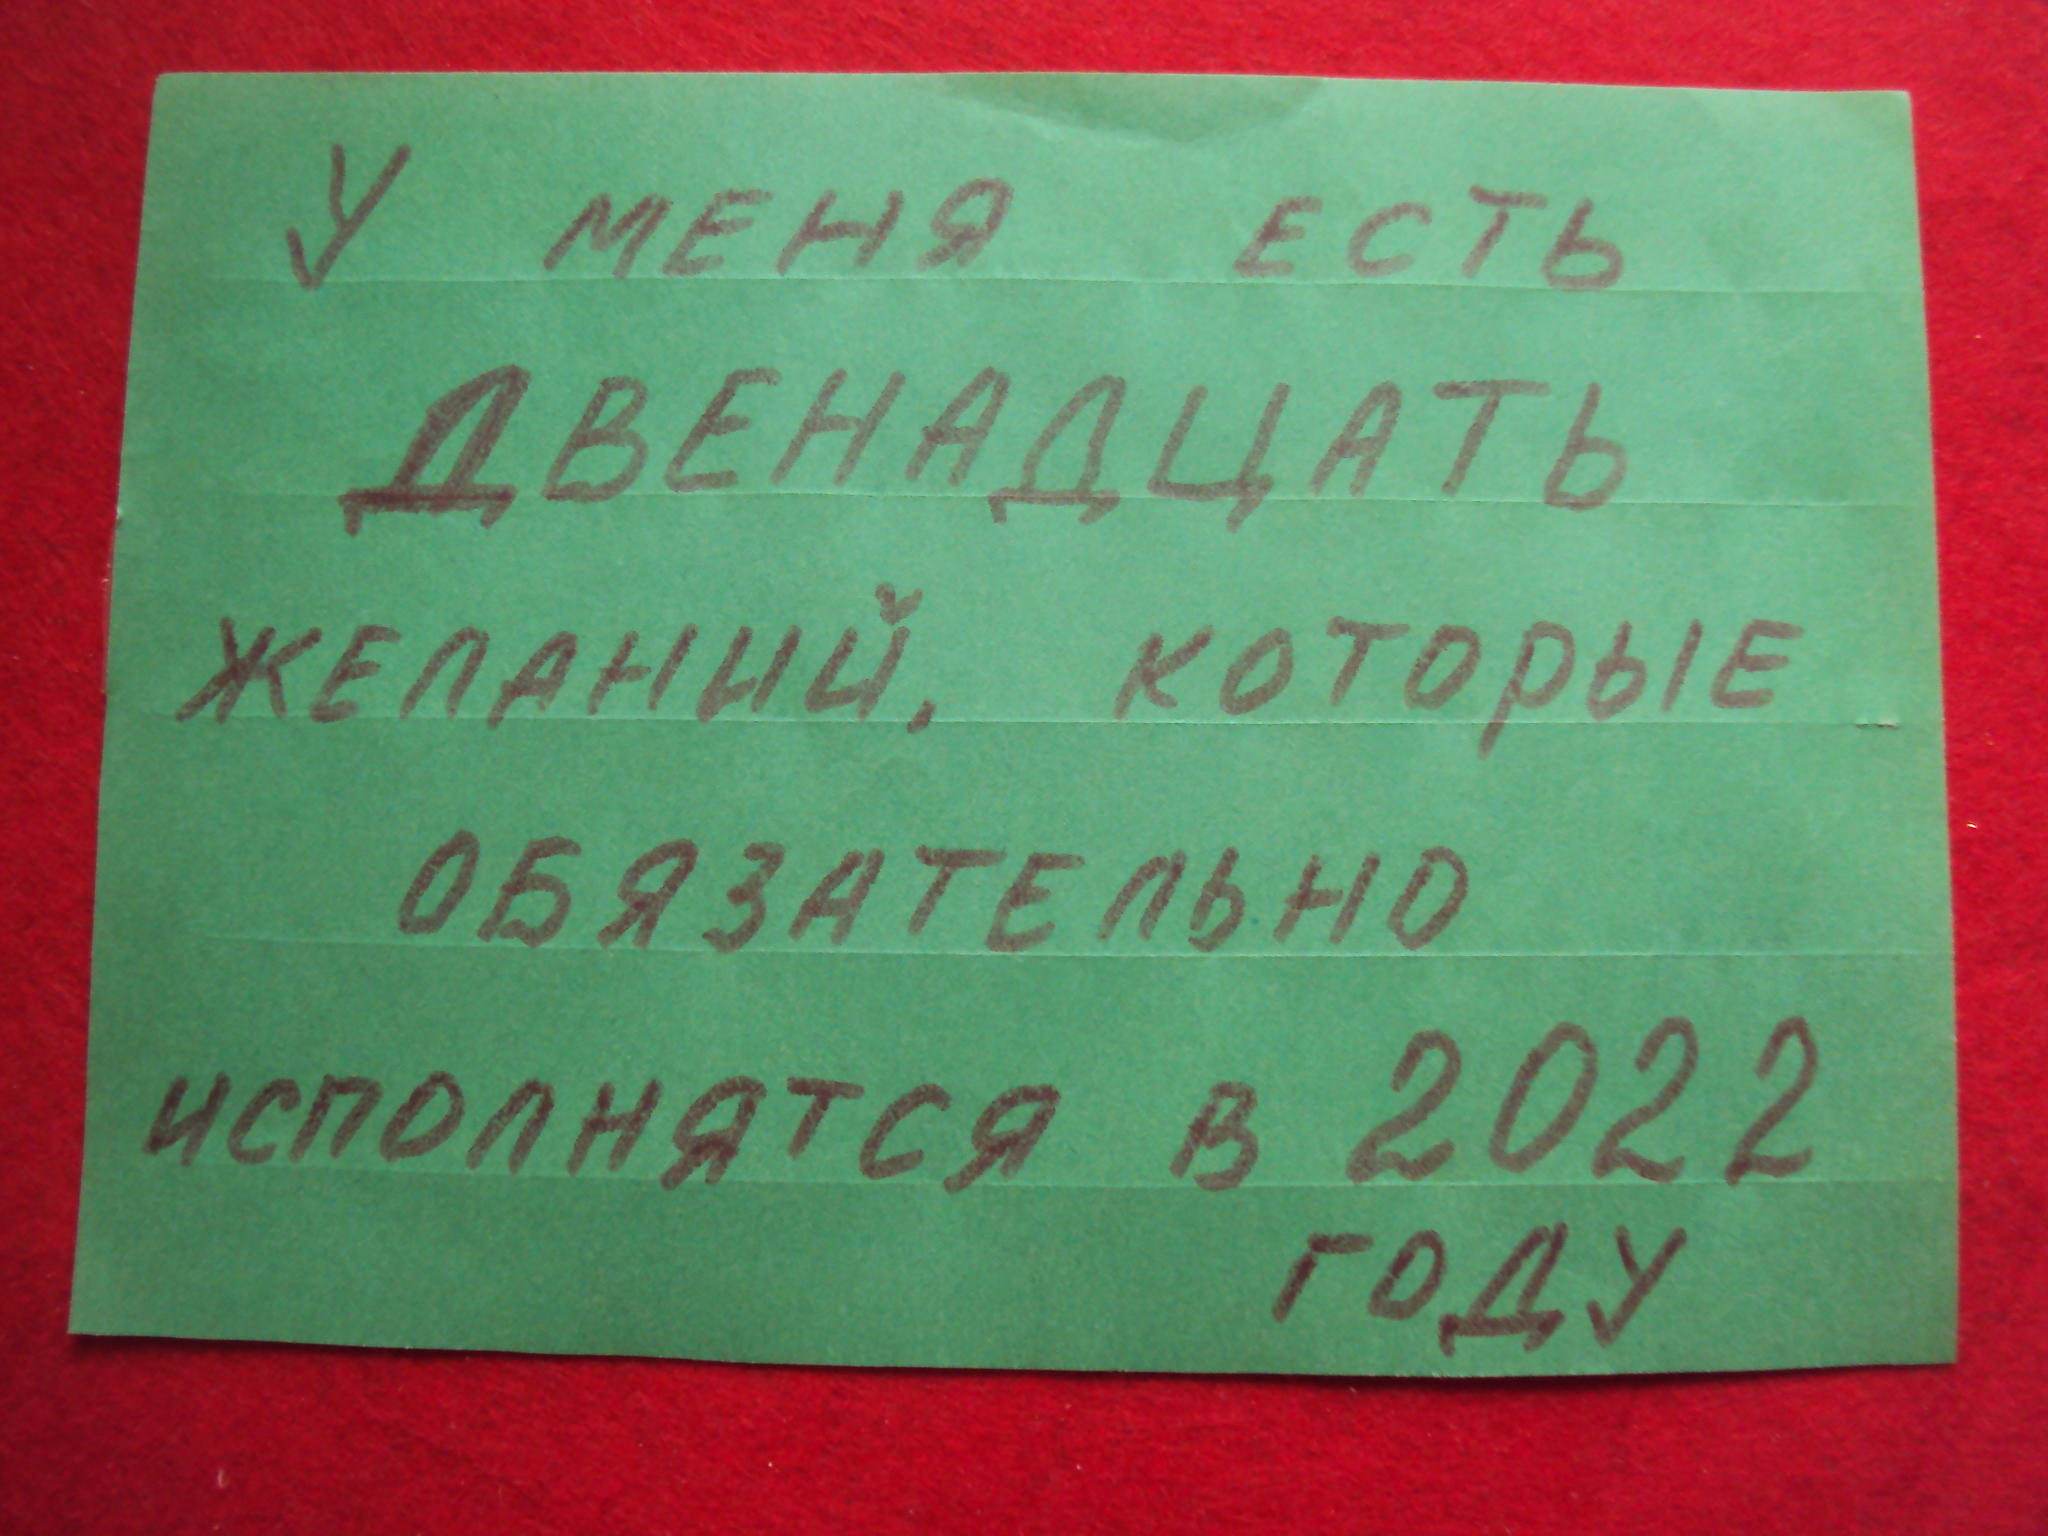 У МЕНЯ ЕСТЬ
ДВЕНАДЦАТЬ
ЖЕЛАНИЙ, КОТОРЫЕ
ОБЯЗАТЕЛЬНО
ИСПОЛНЯТСЯ В 2022
ГОДУ